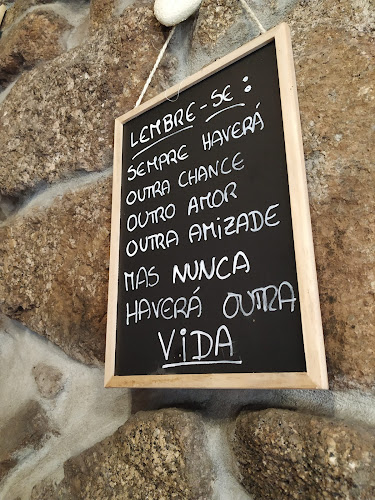 LEMBRE-SE:
SEMPRE HAVERÁ
OUTRA CHANCE
OUTRO AMOR
OUTRA AMIZADE
MAS NUNCA
HAVERÁ OUTRA
VIDA